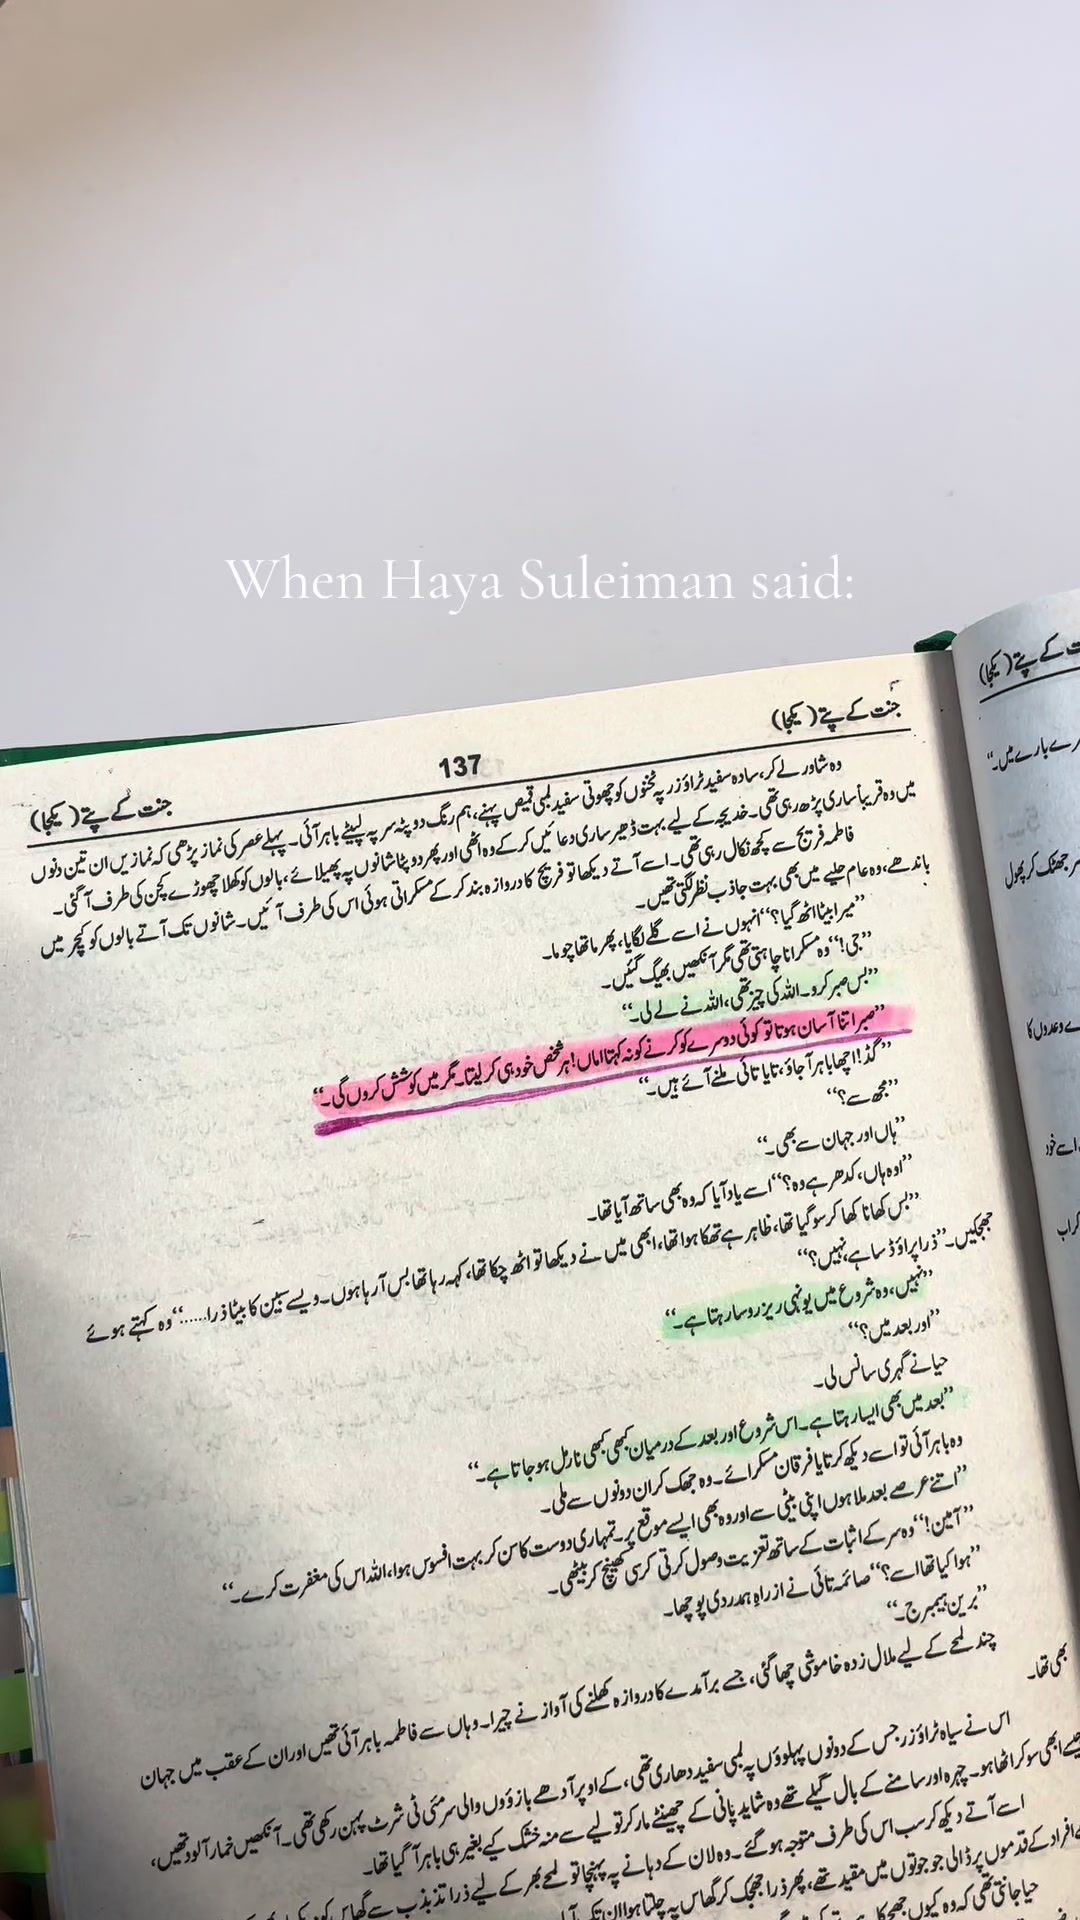 When Haya Suleiman said:
جنت کے پتے (یکجا)
137
جنت کے پتے (یکجا)
وہ شاور لے کر، سادہ سفید ٹراؤزر پہ ٹخنوں کو چھوتی سفید لمبی قمیص پہنے، ہم رنگ دوپٹہ سر پہ لپیٹے باہر آئی۔ پہلے عصر کی نماز پڑھی کہ نمازیں ان تین دنوں
میں وہ قریباً ساری پڑھ رہی تھی۔ خدیجہ کے لیے بہت ڈھیر ساری دعائیں کر کے وہ اٹھی اور پھر دوپٹا شانوں پہ پھیلائے، بالوں کو کھلا چھوڑے کچن کی طرف آ گئی۔
فاطمہ فریج سے کچھ نکال رہی تھی۔ اسے آتے دیکھا تو فریج کا دروازہ بند کر کے مسکراتی ہوئی اس کی طرف آئیں۔ شانوں تک آتے بالوں کو کیچر میں
باندھے، وہ عام حلیے میں بھی بہت جاذب نظر لگتی تھیں۔
”میرا بیٹا اٹھ گیا؟“ انہوں نے اسے گلے لگایا، پھر ماتھا چوما۔
”جی!“ وہ مسکرانا چاہتی تھی مگر آنکھیں بھیگ گئیں۔
”بس صبر کرو۔ اللہ کی چیز تھی، اللہ نے لے لی۔“
”صبر اتنا آسان ہوتا تو کوئی دوسرے کو کرنے کو نہ کہتا اماں! ہر شخص خود ہی کر لیتا۔ مگر میں کوشش کروں گی۔“
”گڈ! اچھا باہر آ جاؤ، تایا تائی ملنے آئے ہیں۔“
”مجھ سے؟“
”ہاں اور جہان سے بھی۔“
”اوہ ہاں، کدھر ہے وہ؟“ اسے یاد آیا کہ وہ بھی ساتھ آیا تھا۔
”بس کھانا کھا کر سو گیا تھا، ظاہر ہے تھکا ہوا تھا، ابھی میں نے دیکھا تو اٹھ چکا تھا، کہہ رہا تھا بس آ رہا ہوں۔ ویسے سبین کا بیٹا ذرا......“ وہ کہتے ہوئے
جھجکیں۔ ”ذرا پراؤڈ سا ہے، نہیں؟“
”نہیں، وہ شروع میں یونہی ریزرو سا رہتا ہے۔“
”اور بعد میں؟“
حیا نے گہری سانس لی۔
”بعد میں بھی ایسا رہتا ہے۔ اس شروع اور بعد کے درمیان کبھی کبھی نارمل ہو جاتا ہے۔“
وہ باہر آئی تو اسے دیکھ کر تایا فرقان مسکرائے۔ وہ جھک کر ان دونوں سے ملی۔
”اتنے عرصے بعد ملا ہوں اپنی بیٹی سے اور وہ بھی ایسے موقع پر۔ تمہاری دوست کا سن کر بہت افسوس ہوا، اللہ اس کی مغفرت کرے۔“
”آمین!“ وہ سر کے اثبات کے ساتھ تعزیت وصول کرتی کرسی کھینچ کر بیٹھی۔
”ہوا کیا تھا اسے؟“ صائمہ تائی نے از راہ ہمدردی پوچھا۔
”برین ہیمبرج۔“
چند لمحے کے لیے ملال زدہ خاموشی چھا گئی، جسے برآمدے کا دروازہ کھلنے کی آواز نے چیرا۔ وہاں سے فاطمہ باہر آئی تھیں اور ان کے عقب میں جہان
بھی تھا۔
اس نے سیاہ ٹراؤزر جس کے دونوں پہلوؤں پہ لمبی سفید دھاری تھی، کے اوپر آدھے بازوؤں والی سرمئی ٹی شرٹ پہن رکھی تھی۔ آنکھیں خمار آلود تھیں،
جیسے ابھی سو کر اٹھا ہو۔ چہرہ اور سامنے کے بال گیلے تھے وہ شاید پانی کے چھینٹے مار کر تولیے سے منہ خشک کیے بغیر ہی باہر آ گیا تھا۔
اسے آتے دیکھ کر سب اس کی طرف متوجہ ہو گئے۔ وہ لان کے دہانے پہ پہنچا تو لمحے بھر کے لیے ذرا تذبذب سے گھاس کو
افراد کے قدموں پر ڈالی جو جوتوں میں مقید تھے، پھر ذرا جھجک کر گھاس پہ چلتا ہوا ان تک
حیا جانتی تھی کہ وہ کیوں